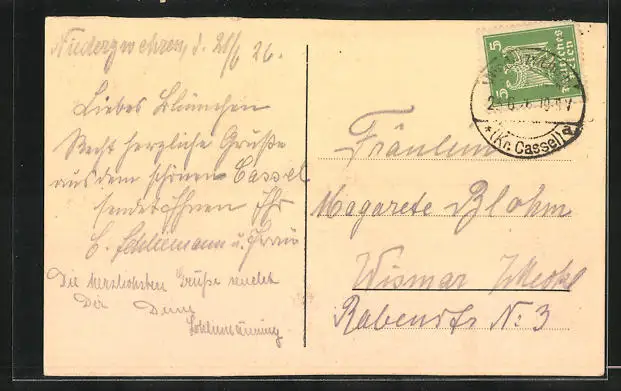 Niederzwehren, d. 28/6 26.
Liebes Blümchen
Recht herzliche Grüße
aus dem schönen Cassel
sendet Ihnen Ihr
E. Schliemann u. Frau
Die herzlichsten Grüße sendet
Dir Deine
5 Deutsches Reich 5
10-11 V
*(Kr. Cassel) a
Fräulein
Magarete Blohm
Wismar i/Meckl
Rabenstr N. 3